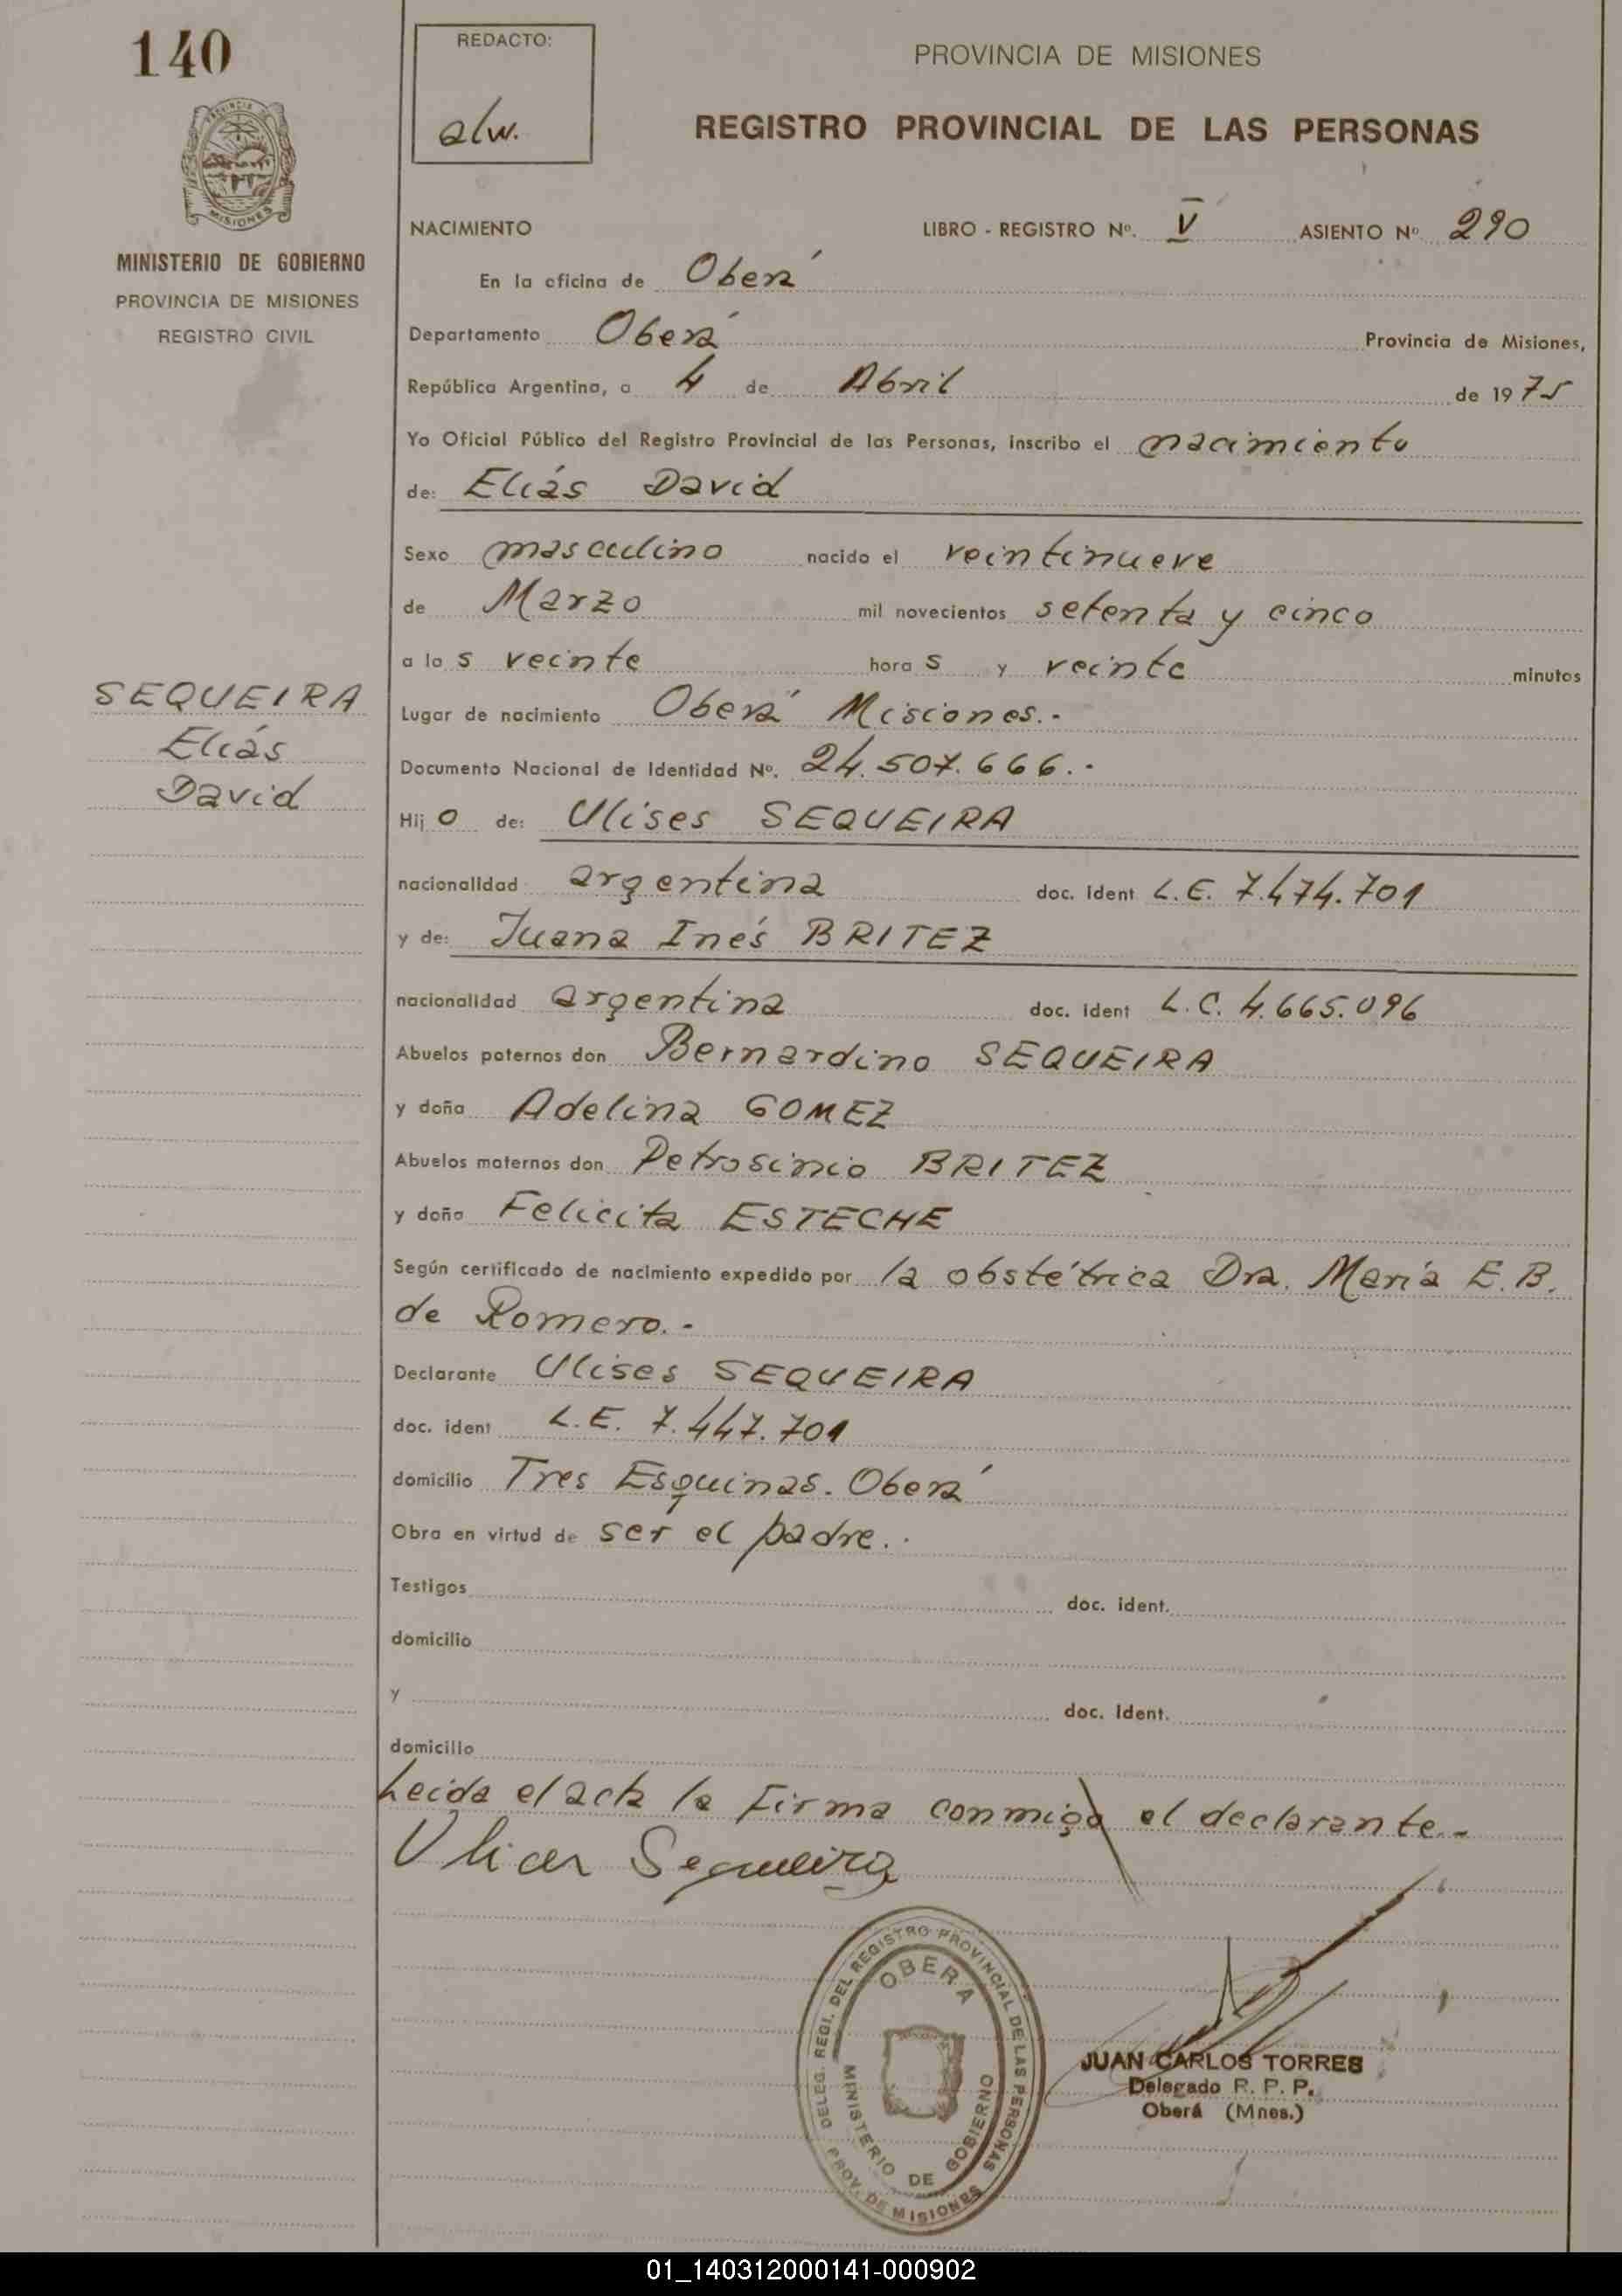 140
REDACTO:
alw.
PROVINCIA DE MISIONES
REGISTRO PROVINCIAL DE LAS PERSONAS
PROVINCIA
MISIONES
MINISTERIO DE GOBIERNO
PROVINCIA DE MISIONES
REGISTRO CIVIL
NACIMIENTO LIBRO - REGISTRO Nº. V ASIENTO Nº 290
En la oficina de Oberá
Departamento Oberá Provincia de Misiones,
República Argentina, a 4 de Abril de 1975
Yo Oficial Público del Registro Provincial de las Personas, inscribo el nacimiento
de: Elías David
Sexo masculino nacido el veintinueve
de Marzo mil novecientos setenta y cinco
a las veinte horas y veinte minutos
SEQUEIRA
Elías
David
Lugar de nacimiento Oberá Misiones.-
Documento Nacional de Identidad Nº. 24.507.666.-
Hijo de: Ulises SEQUEIRA
nacionalidad argentina doc. ident L.E. 7.474.701
y de: Juana Inés BRITEZ
nacionalidad argentina doc. ident L.C. 4.665.096
Abuelos paternos don Bernardino SEQUEIRA
y doña Adelina GOMEZ
Abuelos maternos don Petrosinio BRITEZ
y doña Felicita ESTECHE
Según certificado de nacimiento expedido por la obstétrica Dra. María E.B.
de Romero.-
Declarante Ulises SEQUEIRA
doc. ident L.E. 7.447.701
domicilio Tres Esquinas. Oberá
Obra en virtud de ser el padre.
Testigos doc. ident.
domicilio
y doc. Ident.
domicilio
Leida el acta la Firma conmigo el declarante.-
Ulices Sequeira
DELEG. REGI. DEL REGISTRO PROVINCIAL DE LAS PERSONAS
OBERA
MINISTERIO DE GOBIERNO
PROV. DE MISIONES
JUAN CARLOS TORRES
Delegado R. P. P.
Oberá (Mnes.)
01_140312000141-000902